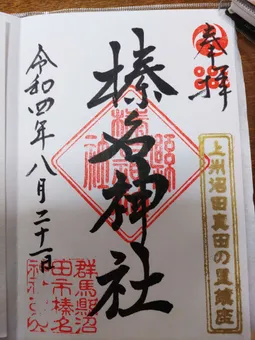 奉拝
上州沼田真田の里鎮座
榛名神社
令和四年八月二十一日
群馬縣沼
田市榛名